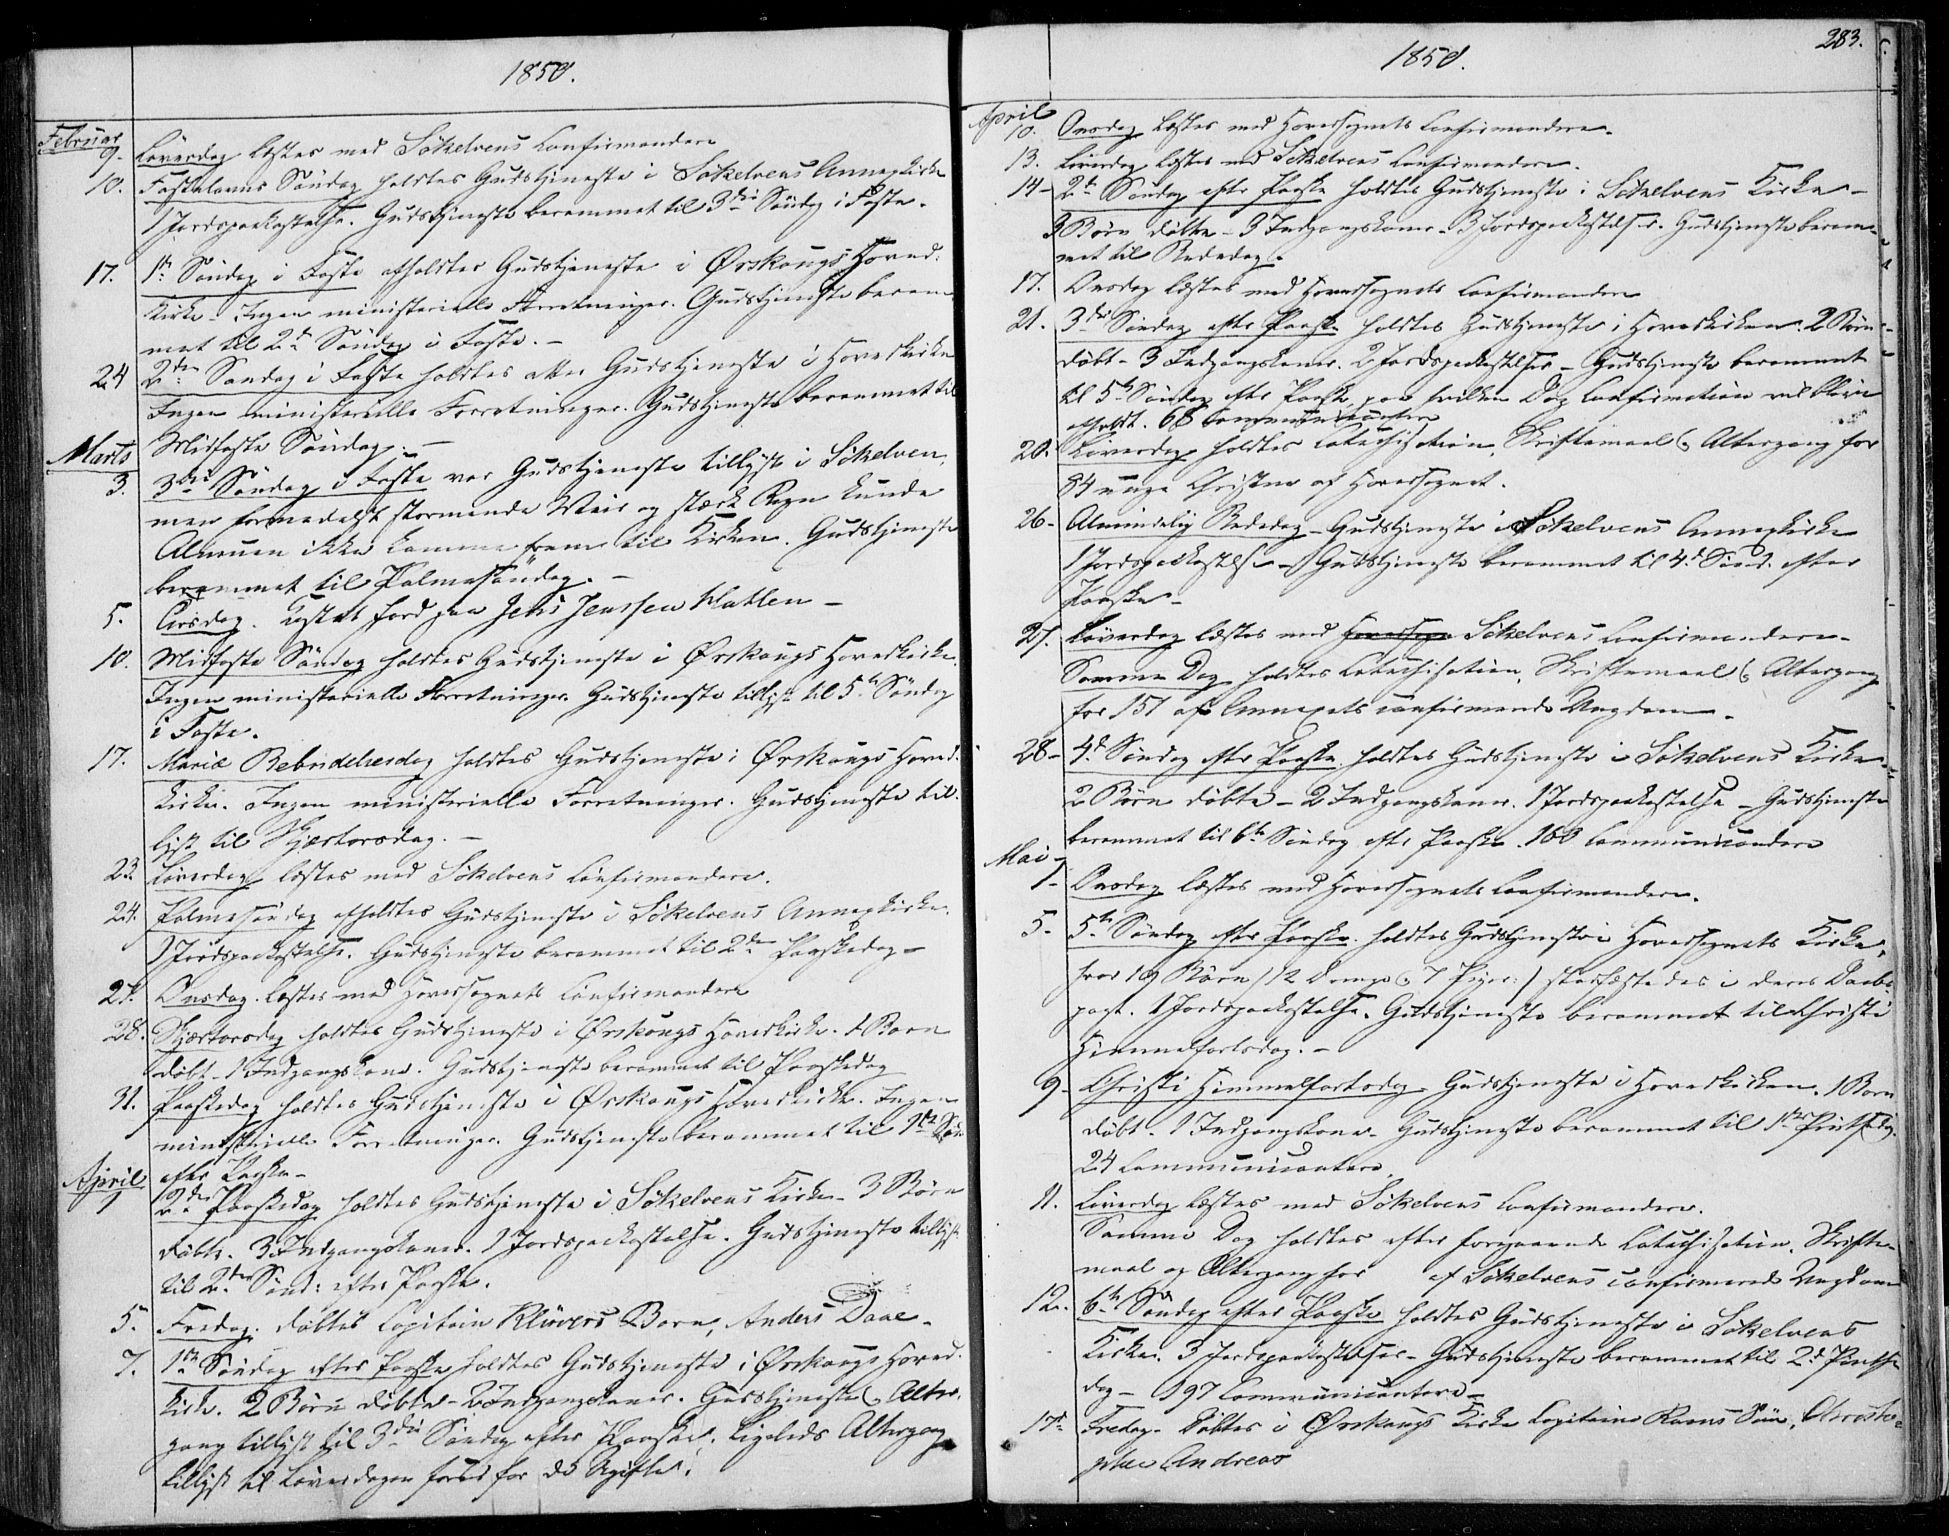 1850.
Februar
9. Löverdag læstes med Sökelvens Confirmander
10. Fastelavns Söndag holdtes Gudstjeneste i Sökelvens Annexkirke
1 Jordspaakastelse. Gudstjeneste berammet til 3die Söndag i Faste.
17. 1ste Söndag i Faste afholdtes Gudstjeneste i Ørskougs Hoved-
kirke. Ingen ministerielle Forretninger. Gudstjeneste beram-
met til 2den Söndag i Faste. –
24 2den Söndag i Faste holdtes atter Gudstjeneste i Hovedkirken
Ingen ministerielle Forretninger. Gudstjeneste berammet til
Midfaste Söndag. –
Marts
3. 3die Söndag i Faste var Gudstjeneste tillyst i Sökelven,
men formedelst stormende Veir og stærk Regn kunde
Almuen ikke komme frem til Kirken. Gudstjeneste
berammet til Palmesöndag. –
5. Tirsdag. kastet Jord paa Jens Jenssen Hatlen –
10. Midfaste Söndag holdtes Gudstjeneste i Ørskougs Hovedkirke.
Ingen ministerielle Forretninger. Gudstjeneste tillyst til 5te Söndag
i Faste.
17. Mariæ Bebudelsesdag holdtes Gudstjeneste i Ørskougs Hoved-
kirke. Ingen ministerielle Forretninger. Gudstjeneste til-
lyst til Skjærtorsdag. –
23. Löverdag læstes med Sökelvens Confirmander.
24. Palmesöndag afholdtes Gudstjeneste i Sökelvens Annexkirke.
1 Jordspaakastelse. Gudstjeneste berammet til 2den Paaskedag –
27. Onsdag læstes med Hovedsognets Confirmander
28. Skjærtorsdag holdtes Gudstjeneste i Ørskougs Hovedkirke. 1 Barn
döbt – 1 Indgangskone. Gudstjeneste berammet til Paaskedag
31. Paaskedag holdtes Gudstjeneste i Ørskougs Hovedkirke. Ingen
ministerielle Forretninger. Gudstjeneste berammet til 1ste Sön
efter Paaske –
April
1 2den Paaskedag holdtes Gudstjeneste i Sökelvens Kirke – 3 Börn
döbte. 3 Indgangskoner. 1 Jordspaakastelse. Gudstjeneste tillyst
til 2den Sönd: efter Paaske.
5. Fredag. döbtes Capitain Klüvers Barn, Anders Daae.
7. 1ste Söndag efter Paaske holdtes Gudstjeneste i Ørskougs Hoved-
kirke. 2 Börn döbte – 2 Indgangskoner. Gudstjeneste & Alter-
gang tillyst til 3die Söndag efter Paaske. Ligeledes Altergang
tillyst til Löverdagen forud for de Ugifte.
283.
1850.
April
10. Onsdag læstes med Hovedsognets Confirmander.
13. Löverdag læstes med Sökelvens Confirmander.
14 – 2den Söndag efter Paaske holdtes Gudstjeneste i Sökelvens Kirke –
3 Börn döbte – 3 Indgangskoner – 3 Jordspaakastelser. Gudstjeneste beram-
met til Bededag.
17. Onsdag læstes med Hovedsognets Confirmander
21. 3die Söndag efter Paaske holdtes Gudstjeneste i Hovedkirken. 2 Börn
döbt – 3 Indgangskoner. 2 Jordspaakastelser – Gudstjeneste berammet
til 5te Söndag efter Paaske, paa hvilken Dag Confirmation vil blive
afholdt. 68 Communicanter
20. Löverdag holdtes Catechisation, Skriftemaal & Altergang for
84 unge Christne af Hovedsognet.
26 – Almindelig Bededag – Gudstjeneste i Sökelvens Annexkirke
1 Jordspaakastelse – Gudstjeneste berammet til 4de Sönd. efter
Paaske –
27. Löverdag læstes med Sökelvens Confirmander –
Samme Dag holdtes Catechisation, Skriftemaal & Altergang
for 151 af Annexets confirmerede Ungdom.
28 – 4de Söndag efter Paaske holdtes Gudstjeneste i Sökelvens Kirke –
2 Börn döbte – 2 Indgangskoner. 1 Jordspaakastelse – Gudstjeneste
berammet til 6te Söndag efter Paaske. 160 Communicanter
Mai –
1 – Onsdag læstes med Hovedsognets Confirmander.
5 – 5te Söndag efter Paaske holdtes Gudstjeneste i Hovedsognets Kirke,
hvor 19 Börn /: 12 Drenge & 7 Piger :/ stadfæstedes i deres Daabs-
pagt. 1 Jordspaakastelse. Gudstjeneste berammet til Christi
Himmelfartsdag. –
9 – Christi Himmelfartsdag Gudstjeneste i Hovedkirken. 1 Barn
döbt – 1 Indgangskone – Gudstjeneste berammet til 1ste Pintsedag.
24 Communicanter.
11. Löverdag læstes med Sökelvens Confirmander.
Samme Dag holdtes efter foregaaende Catechisation, Skrifte-
maal og Altergang for af Sökelvens confirmerede Ungdom
12. 6te Söndag efter Paaske holdtes Gudstjeneste i Sökelvens
Kirke. 3 Jordspaakastelser – Gudstjeneste berammet til 2den Pintse-
dag – 197 Communicantere –
17. Fredag – Döbtes i Ørskougs Kirke Capitaine Rams Sön, Christo-
pher Andreas